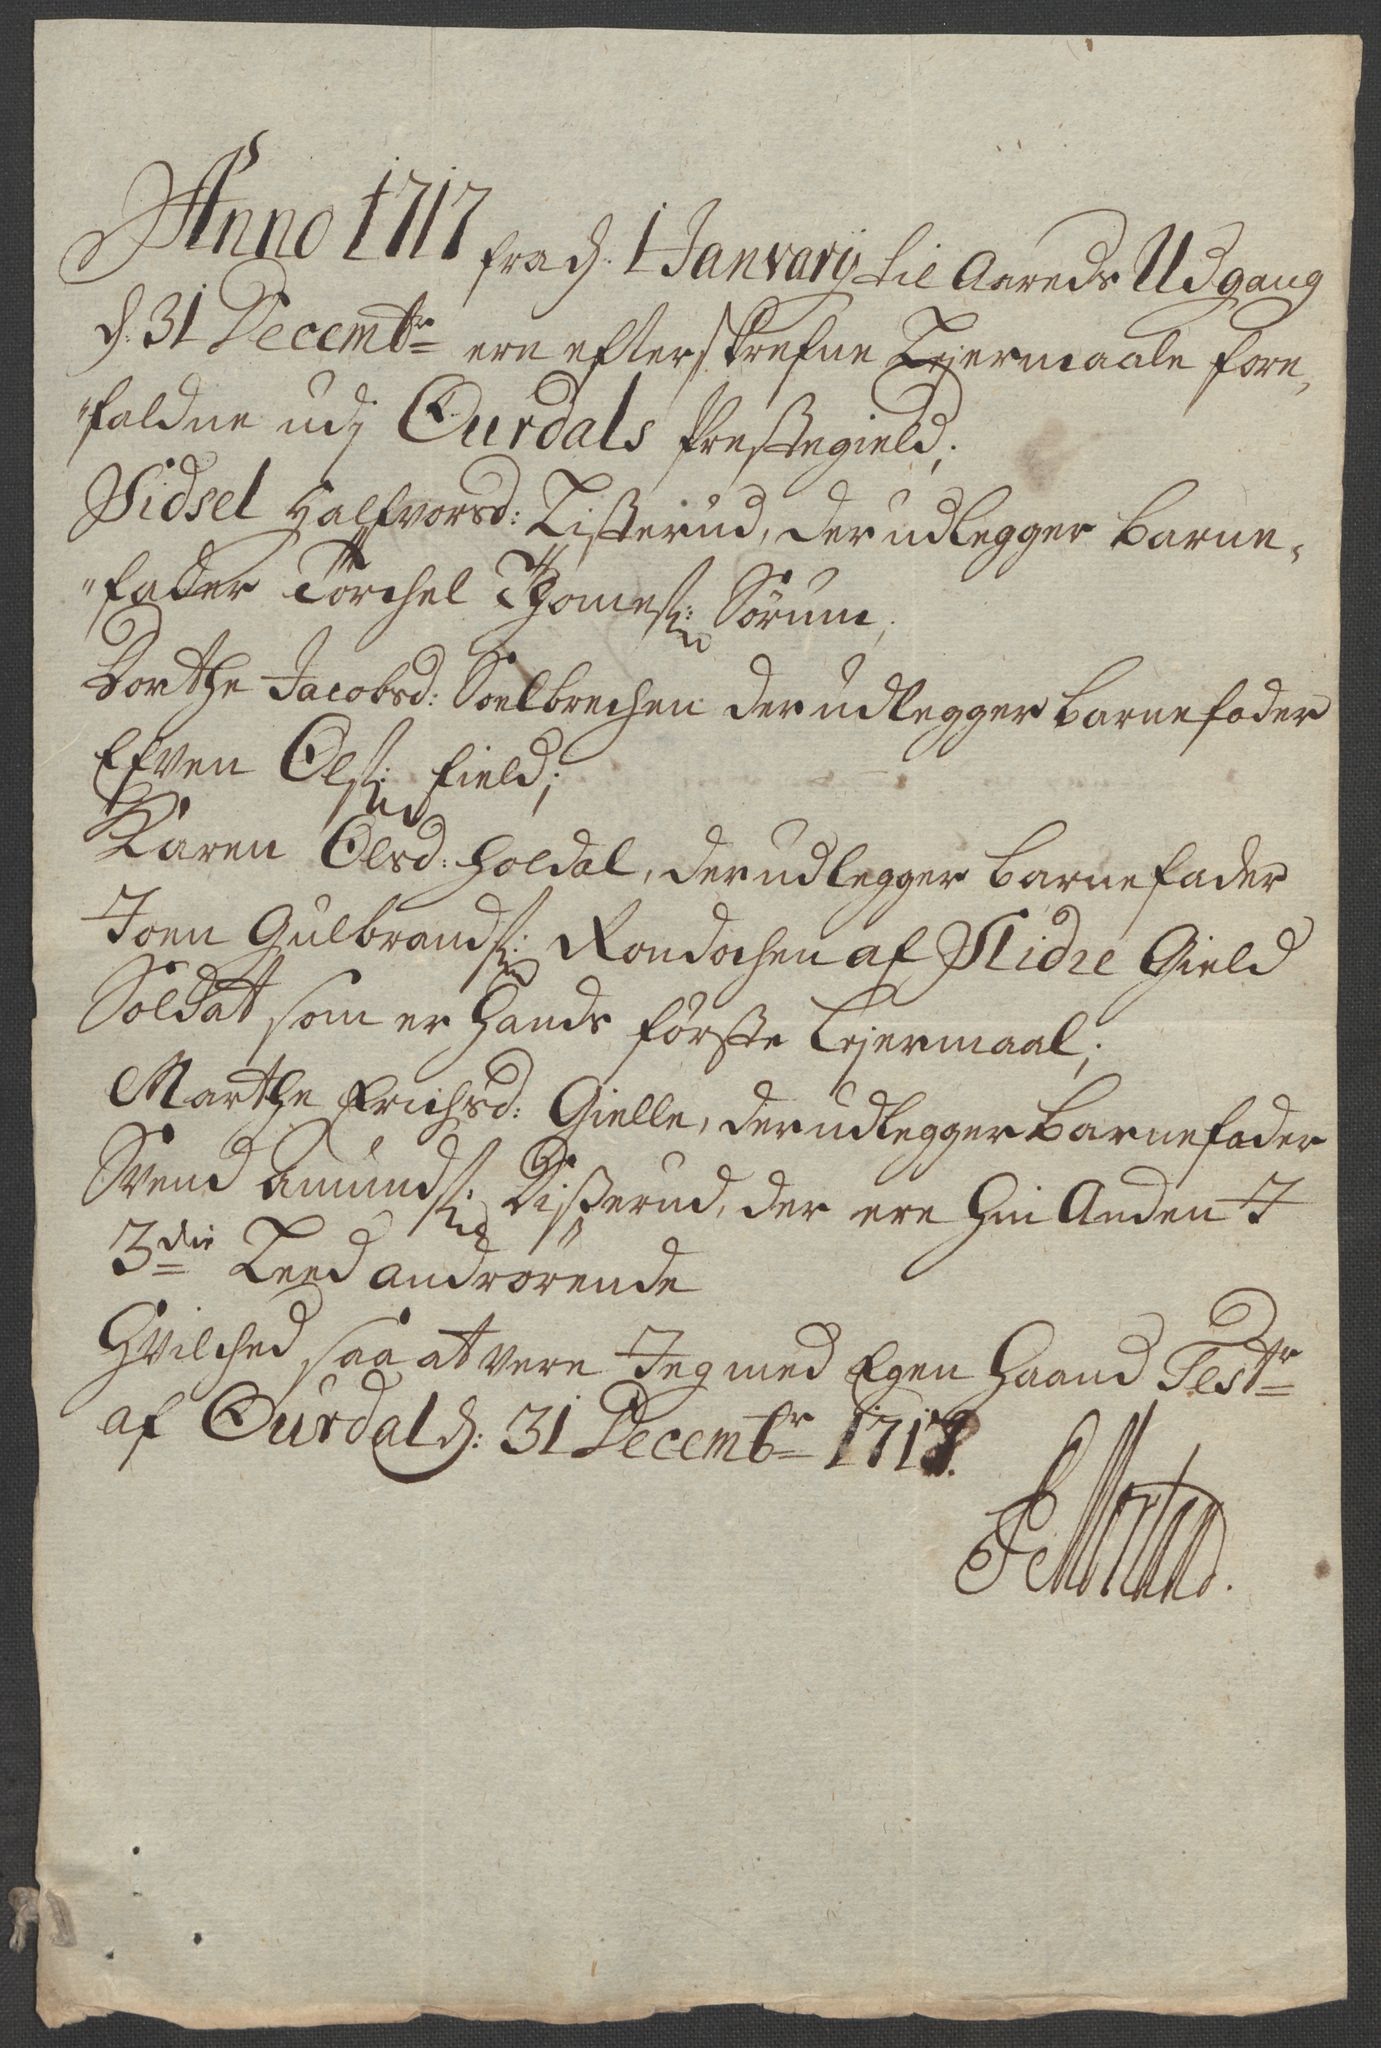 Anno 1717 fra d. 1 Janvarÿ til Aareds Udgang
d: 31 Decembr ere efterskrefne Lejermaale fore
faldne udj Ourdals Prestegield;
Sidsel Halfvorsd: Tisterud, der udlegger barne
fader Torchel Thomes: Sørum,
Dorthe Jacobsd: Soelbrechen der udlegger barnefader
Efven Ols: Field;
Karen Olsd: Holdal, der udlegger barnefader
Joen Gulbrands: Rondochen af Slidre Gield
Soldat som er Hands første Lejermaal;
Marthe Erichsd: Gielle, der udlegger barnefader
Svend Amunds: Disserud, der ere Hin Anden J
3die Leed andrørende
Hvilched saa at vere Jeg med Egen Haand Testr
af Ourdal d: 31 Decembr 1717.